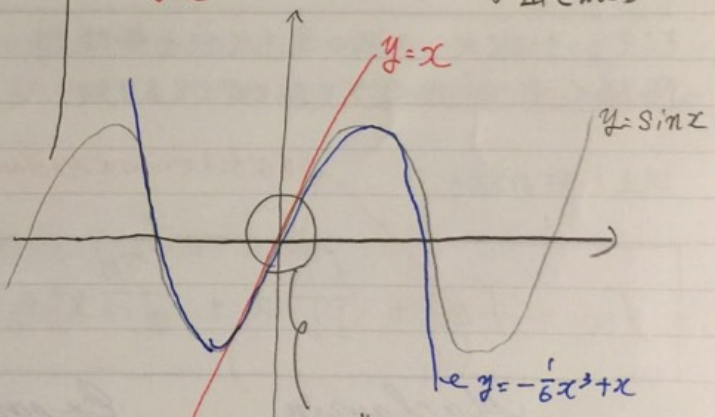 y=x
y=sinx
y=-1/6x³+x